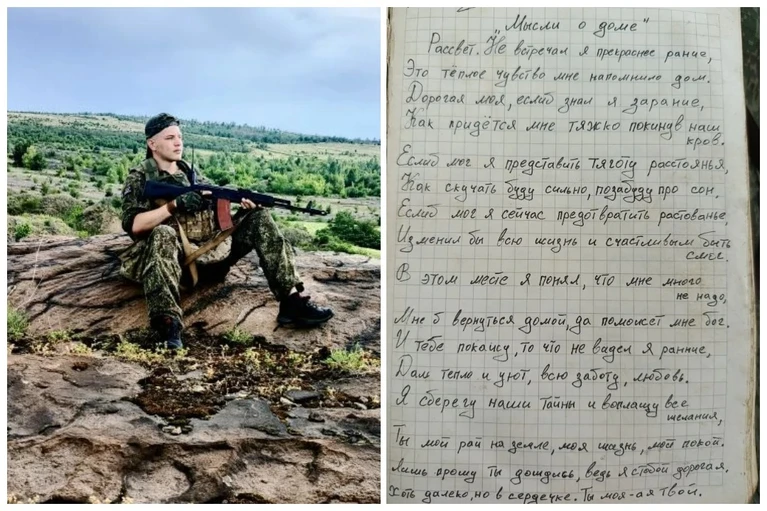 „Мысли о доме"
Рассвет. Не встречал я прекраснее ранне,
Это тёплое чувства мне напомнило дом.
Дорогая моя, еслиб знал я зарание,
Как придётся мне тяжко покинув наш
кров.
Еслиб мог я представить тяготу расстоянья,
Как скучать буду сильно, позабуду про сон.
Еслиб мог я сейчас предотвратить растованье,
Изменил бы всю жизнь и счастливым быть
смог.
В этом месте я понял, что мне много
не надо,
Мне б вернуться домой, да поможет мне бог.
И тебе покажу, то что не видел я ранние,
Дам тепло и уют, всю заботу, любовь.
Я сберегу наши тайны и воплащу все
желания,
Ты мой рай на земле, моя жизнь, мой покой.
Лишь прошу ты дождись, ведь я стобой дорогая.
Хоть далеко, но в сердечке. Ты моя-а я твой.